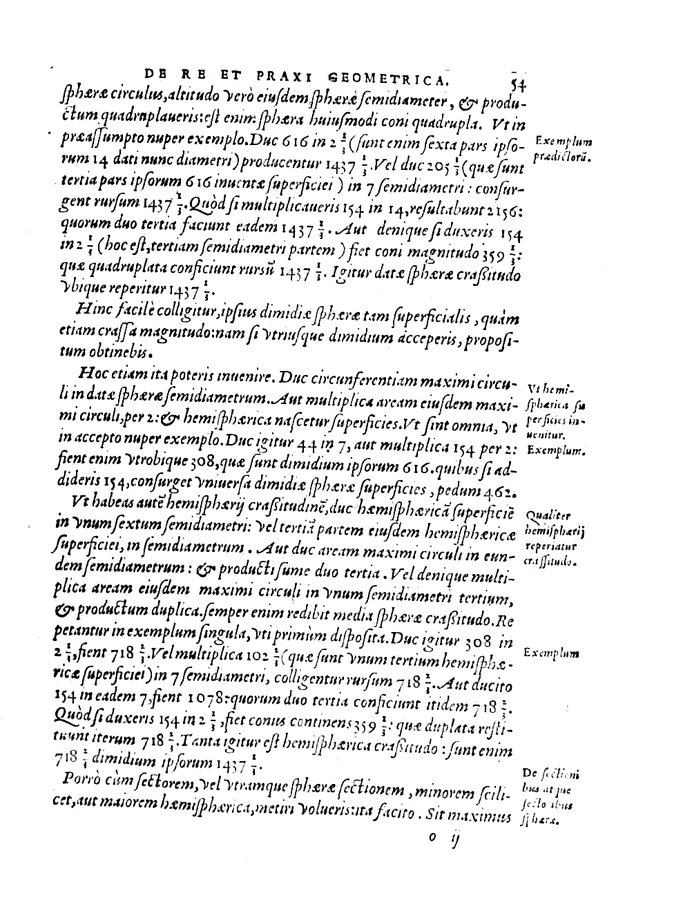 DE RE ET PRAXI GEOMETRICA. 54
sphæræ circulus, altitudo verò eiusdem sphæræ semidiameter, & produ-
ctum quadruplaueris: est enim sphæra huiusmodi coni quadrupla. Vt in
præassumpto nuper exemplo. Duc 616 in 2 1/3 (sunt enim sexta pars ipso-
rum 14 dati nunc diametri) producentur 1437 1/3. Vel duc 205 1/3 (quæ sunt
tertia pars ipsorum 616 inuentæ superficiei) in 7 semidiametri: consur-
gent rursum 1437 1/3. Quòd si multiplicaueris 154 in 14, resultabunt 2156:
quorum duo tertia faciunt eadem 1437 1/3. Aut denique si duxeris 154
in 2 1/3 (hoc est, tertiam semidiametri partem) fiet coni magnitudo 359 1/3:
quæ quadruplata conficiunt rursũ 1437 1/3. Igitur datæ sphæræ crassitudo
vbique reperitur 1437 1/3.
Exemplum
prædictorũ.
Hinc facilè colligitur, ipsius dimidiæ sphæræ tam superficialis, quàm
etiam crassa magnitudo: nam si vtriusque dimidium acceperis, proposi-
tum obtinebis.
Hoc etiam ita poteris inuenire. Duc circunferentiam maximi circu-
li in datæ sphæræ semidiametrum. Aut multiplica aream eiusdem maxi-
mi circuli, per 2: & hemisphærica nascetur superficies. Vt sint omnia, vt
in accepto nuper exemplo. Duc igitur 44 in 7, aut multiplica 154 per 2:
fient enim vtrobique 308, quæ sunt dimidium ipsorum 616. quibus si ad-
dideris 154, consurget vniuersa dimidiæ sphæræ superficies, pedum 462.
Vt hemi-
sphærica su
perficies in-
uenitur.
Exemplum.
Vt habeas autẽ hemisphærij crassitudinẽ, duc hæmisphæricã superficiẽ
in vnum sextum semidiametri: vel tertiã partem eiusdem hemisphæricæ
superficiei, in semidiametrum. Aut duc aream maximi circuli in eun-
dem semidiametrum: & producti sume duo tertia. Vel denique multi-
plica aream eiusdem maximi circuli in vnum semidiametri tertium,
& productum duplica. semper enim redibit media sphæræ crassitudo. Re
petantur in exemplum singula, vti primùm disposita. Duc igitur 308 in
2 1/3, fient 718 2/3. Vel multiplica 102 2/3 (quæ sunt vnum tertium hemisphæ-
ricæ superficiei) in 7 semidiametri, colligentur rursum 718 2/3. Aut ducito
154 in eadem 7, fient 1078: quorum duo tertia conficiunt itidem 718 2/3.
Quòd si duxeris 154 in 2 1/3, fiet conus continens 359 1/3: quæ duplata resti-
tuunt iterum 718 2/3. Tanta igitur est hemisphærica crassitudo: sunt enim
718 2/3 dimidium ipsorum 1437 1/3.
Qualiter
hemisphærij
reperiatur
crassitudo.
Exemplum
Porrò cùm sectorem, vel vtramque sphæræ sectionem, minorem scili-
cet, aut maiorem hæmisphærica, metiri volueris: ita facito. Sit maximus
De sectioni
bus atque
sectoribus
sphæræ.
o ij